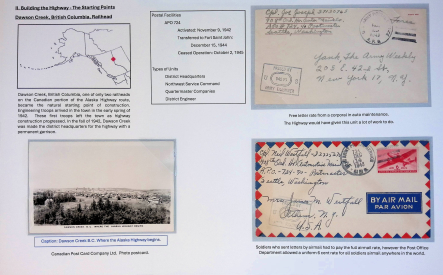 II. Building the Highway - The Starting Points
Dawson Creek, British Columbia, Railhead
Dawson Creek, British Columbia, one of only two railheads
on the Canadian portion of the Alaska Highway route,
became the natural starting point of construction.
Engineering troops arrived in the town in the early spring of
1942. These first troops left the town as highway
construction progressed. In the fall of 1942, Dawson Creek
was made the district headquarters for the highway with a
permanent garrison.
Postal Facilities
APO 724
Activated: November 9, 1942
Transferred to Fort Saint John:
December 15, 1944
Ceased Operation: October 3, 1945
Types of Units
District Headquarters
Northwest Service Command
Quartermaster Companies
District Engineer
Yank, The Army Weekly
205 E. 42d St.
New York 17, N.Y.
Free letter rate from a corporal in auto maintenance.
The Highway would have given this unit a lot of work to do.
Caption: Dawson Creek B.C. Where the Alaska Highway begins.
Canadian Post Card Company Ltd. Photo postcard.
Seattle, Washington
BY AIR MAIL
PAR AVION
U.S.A
Soldiers who sent letters by airmail had to pay the full airmail rate, however the Post Office
Department allowed a uniform 6 cent rate for all soldiers airmail anywhere in the world.